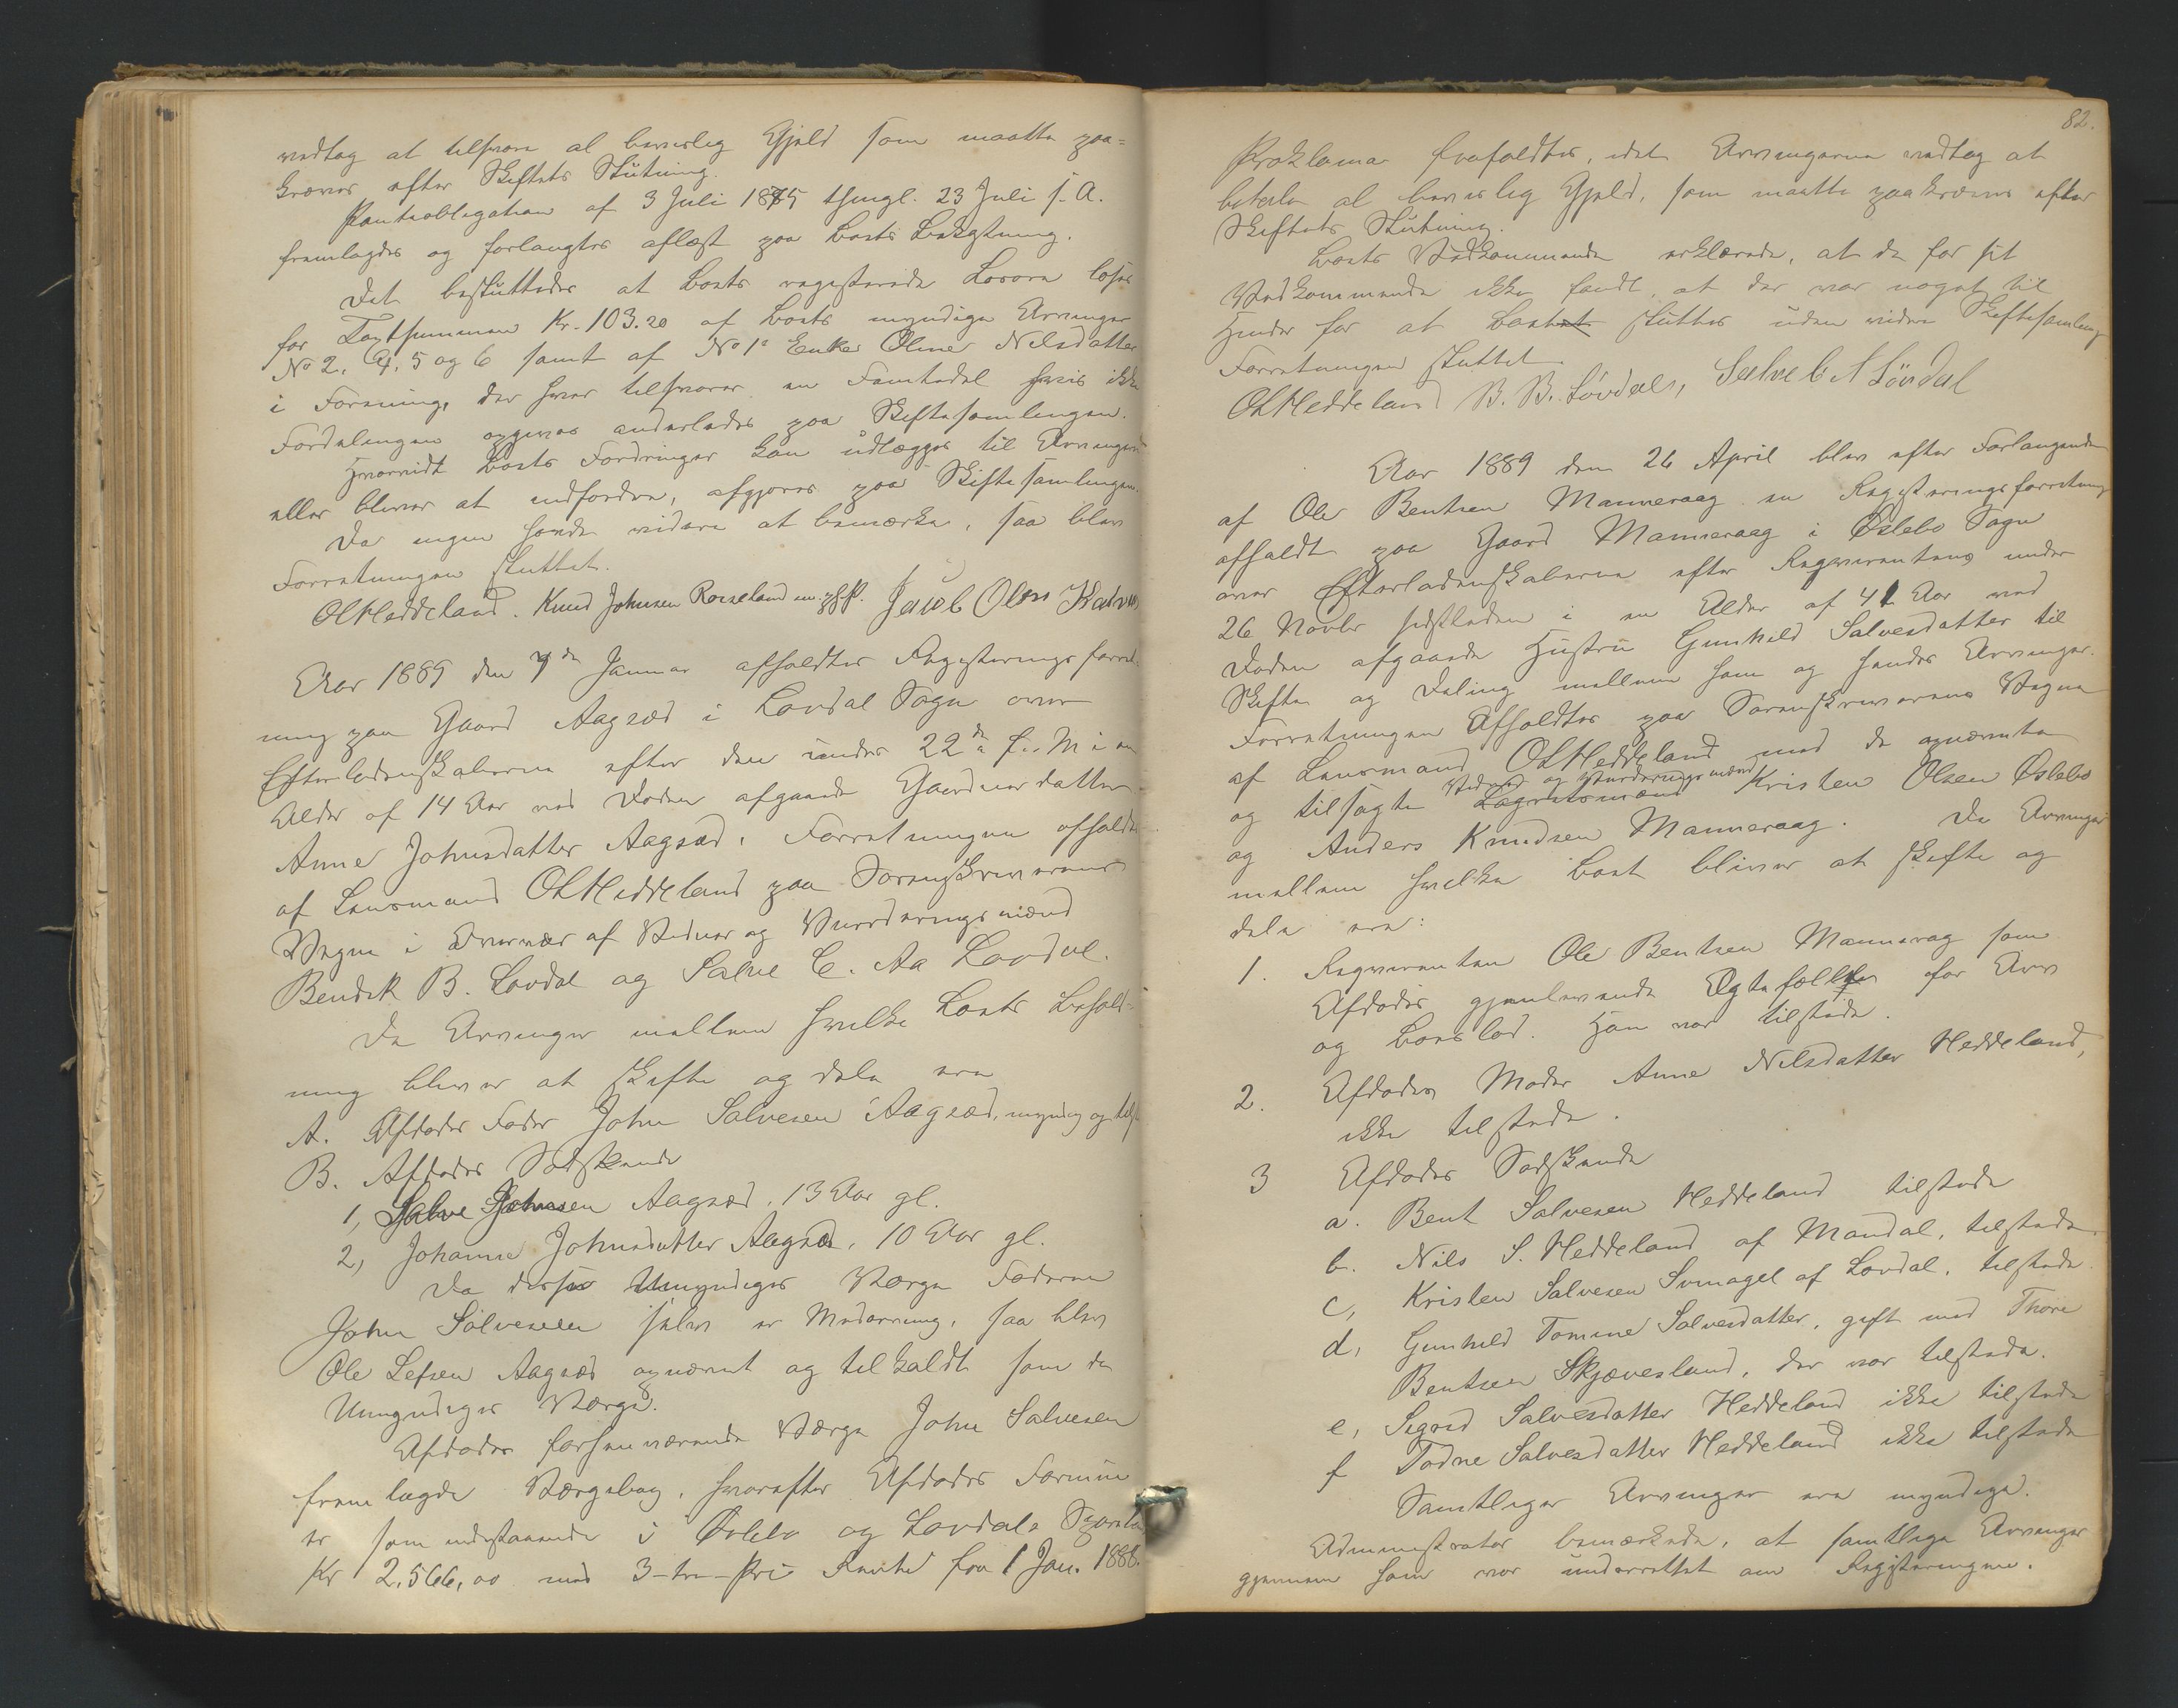 vedtog at tilsvare al beviislig Gjæld som maatte paa-
kræves efter Skiftets Slutning.
Panteobligation af 3 Juli 1875 thingl. 23 Juli s. A.
fremlagdes og forlangtes aflæst paa Boets Bekostning.
Det besluttedes at Boets registrerede Løsøre løses
for Taxtsummen Kr. 103.20 af Boets myndige Arvinger
No 2, 4, 5 og 6 samt af No 1 Enke Oline Nilsdatter
i Forening, der hver tilsvarer en Femtedel hvis ikke
Fordelingen opgives anderledes paa Skiftesamlingen.
Hvorvidt Boets Fordringer kan udlægges til Arvingerne
eller bliver at indfordre, afgjøres paa Skiftesamlingen.
Da ingen havde videre at bemærke, saa blev
Forretningen sluttet.
OlHeddeland. Knud Johnsen Rosseland m. p. P. Jacob Olsen
Aar 1889 den 7de Januar afholdtes Registreringsforret-
ning paa Gaard Aagsæd i Løvdal Sogn over
Efterladenskaberne efter den under 22de f. M i en
Alder af 14 Aar ved Døden afgaaede Gaardmandsdatter
Anne Johnsdatter Aagsæd. Forretningen afholdtes
af Lensmand OlHeddeland paa Sorenskriverens
Vegne i Overvær af Vidner og Vurderingsmænd
Bendik B. Løvdal og Salve C. Aa Løvdal.
De Arvinger mellem hvilke Boets Behold-
ning bliver at skifte og dele ere
A. Afdødes Fader John Salvesen Aagsæd, myndig og tilst.
B. Afdødes Sødskende
1, Salve Johnsen Aagsæd, 13 Aar gl.
2, Johanne Johnsdatter Aagsæd, 10 Aar gl.
Da disse Umyndiges Værge Faderen
John Salvesen selv er Medarving, saa blev
Ole Lefsen Aagsæd opnævnt og tilkaldt som de
Umyndiges Værge.
Afdødes forhenværende Værge John Salvesen
fremlagde Værgebog, hvorefter Afdødes Formue
er som indestaaende i Øslebø og Løvdals Spareba
Kr 2,566,00 med 3-tre-Pct Rente fra 1 Jan. 1888.
82.
Proklama frafaldtes, idet Arvingerne vedtog at
betale al beviislig Gjæld, som maatte paakræves efter
Skiftets Slutning.
Boets Vedkommende erklærede, at de for sit
Vedkommende ikke fandt, at der var noget til
Hinder for at Boet sluttes uden videre Skiftesamling
Forretningen sluttet.
OlHeddeland B. B. Løvdal, Salve C A Løvdal
Aar 1889 den 26 April blev efter Forlangende
af Ole Bentsen Manneraag en Registreringsforretning
afholdt paa Gaard Manneraag i Øslebø Sogn
over Efterladenskaberne efter Rekvirentens under
26 Novbr sidstleden i en Alder af 41 Aar ved
Døden afgaaede Hustru Gunhild Salvesdatter til
Skifte og Deling mellem ham og hendes Arvinger.
Forretningen Afholdtes paa Sorenskriverens Vegne
af Lensmand OlHeddeland med de opnævnte
og tilsagte Vidner og Vurderingsmænd Lagretsmænd Kristen Olsen Øslebø
og Anders Knudsen Manneraag. De Arvinger
mellem hvilke Boet bliver at skifte og
dele ere:
1. Rekvirenten Ole Bentsen Manneraag som
Afdødes gjenlevende Ægtefælle for Arv
og Boeslod. Han var tilstede.
2. Afdødes Moder Anne Nilsdatter Heddeland,
ikke tilstede.
3 Afdødes Sødskende
a. Bent Salvesen Heddeland tilstede
b. Nils S. Heddeland af Mandal, tilstede.
c, Kristen Salvesen Svinagel af Løvdal, tilstede.
d, Gunhild Tomine Salvesdatter, gift med Thore
Bentsen Skjævesland, der var tilstede.
e, Sigrid Salvesdatter Heddeland ikke tilstede
f Todne Salvesdatter Heddeland ikke tilstede
Samtlige Arvinger ere myndige.
Administrator bemærkede, at samtlige Arvinger
gjennem ham var underrettet om Registreringen.